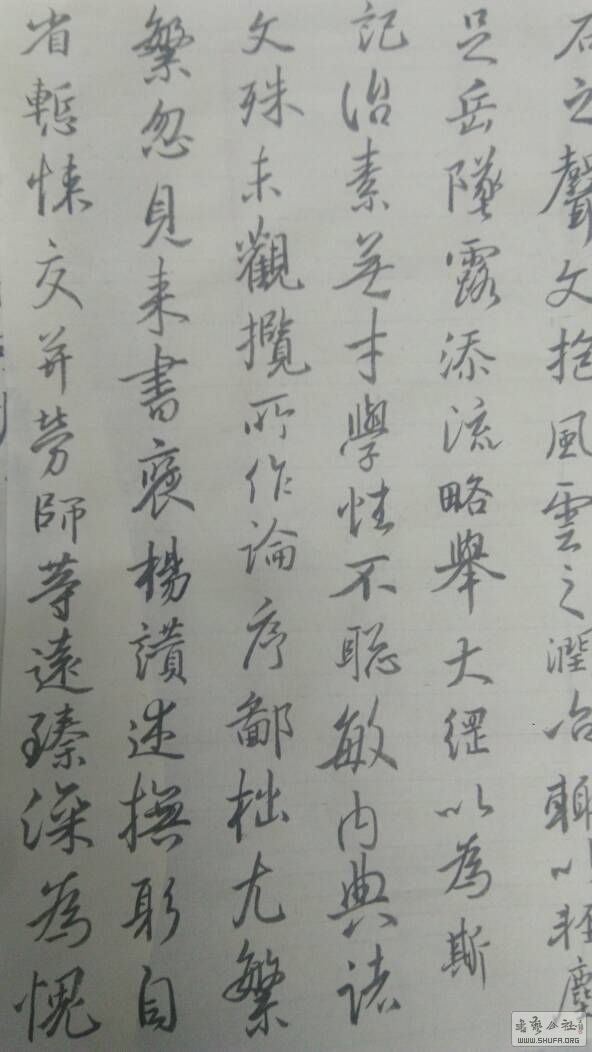 石之聲文抱風雲之潤治輒以輕塵
足岳墜露添流略舉大綱以為斯
記治素無才學性不聰敏內典諸
文殊未觀攬所作論序鄙拙尤繁
繁忽見来書褒揚讚述撫躬自
省慙悚交并勞師等遠臻深為愧
書藝公社
WWW.SHUFA.ORG